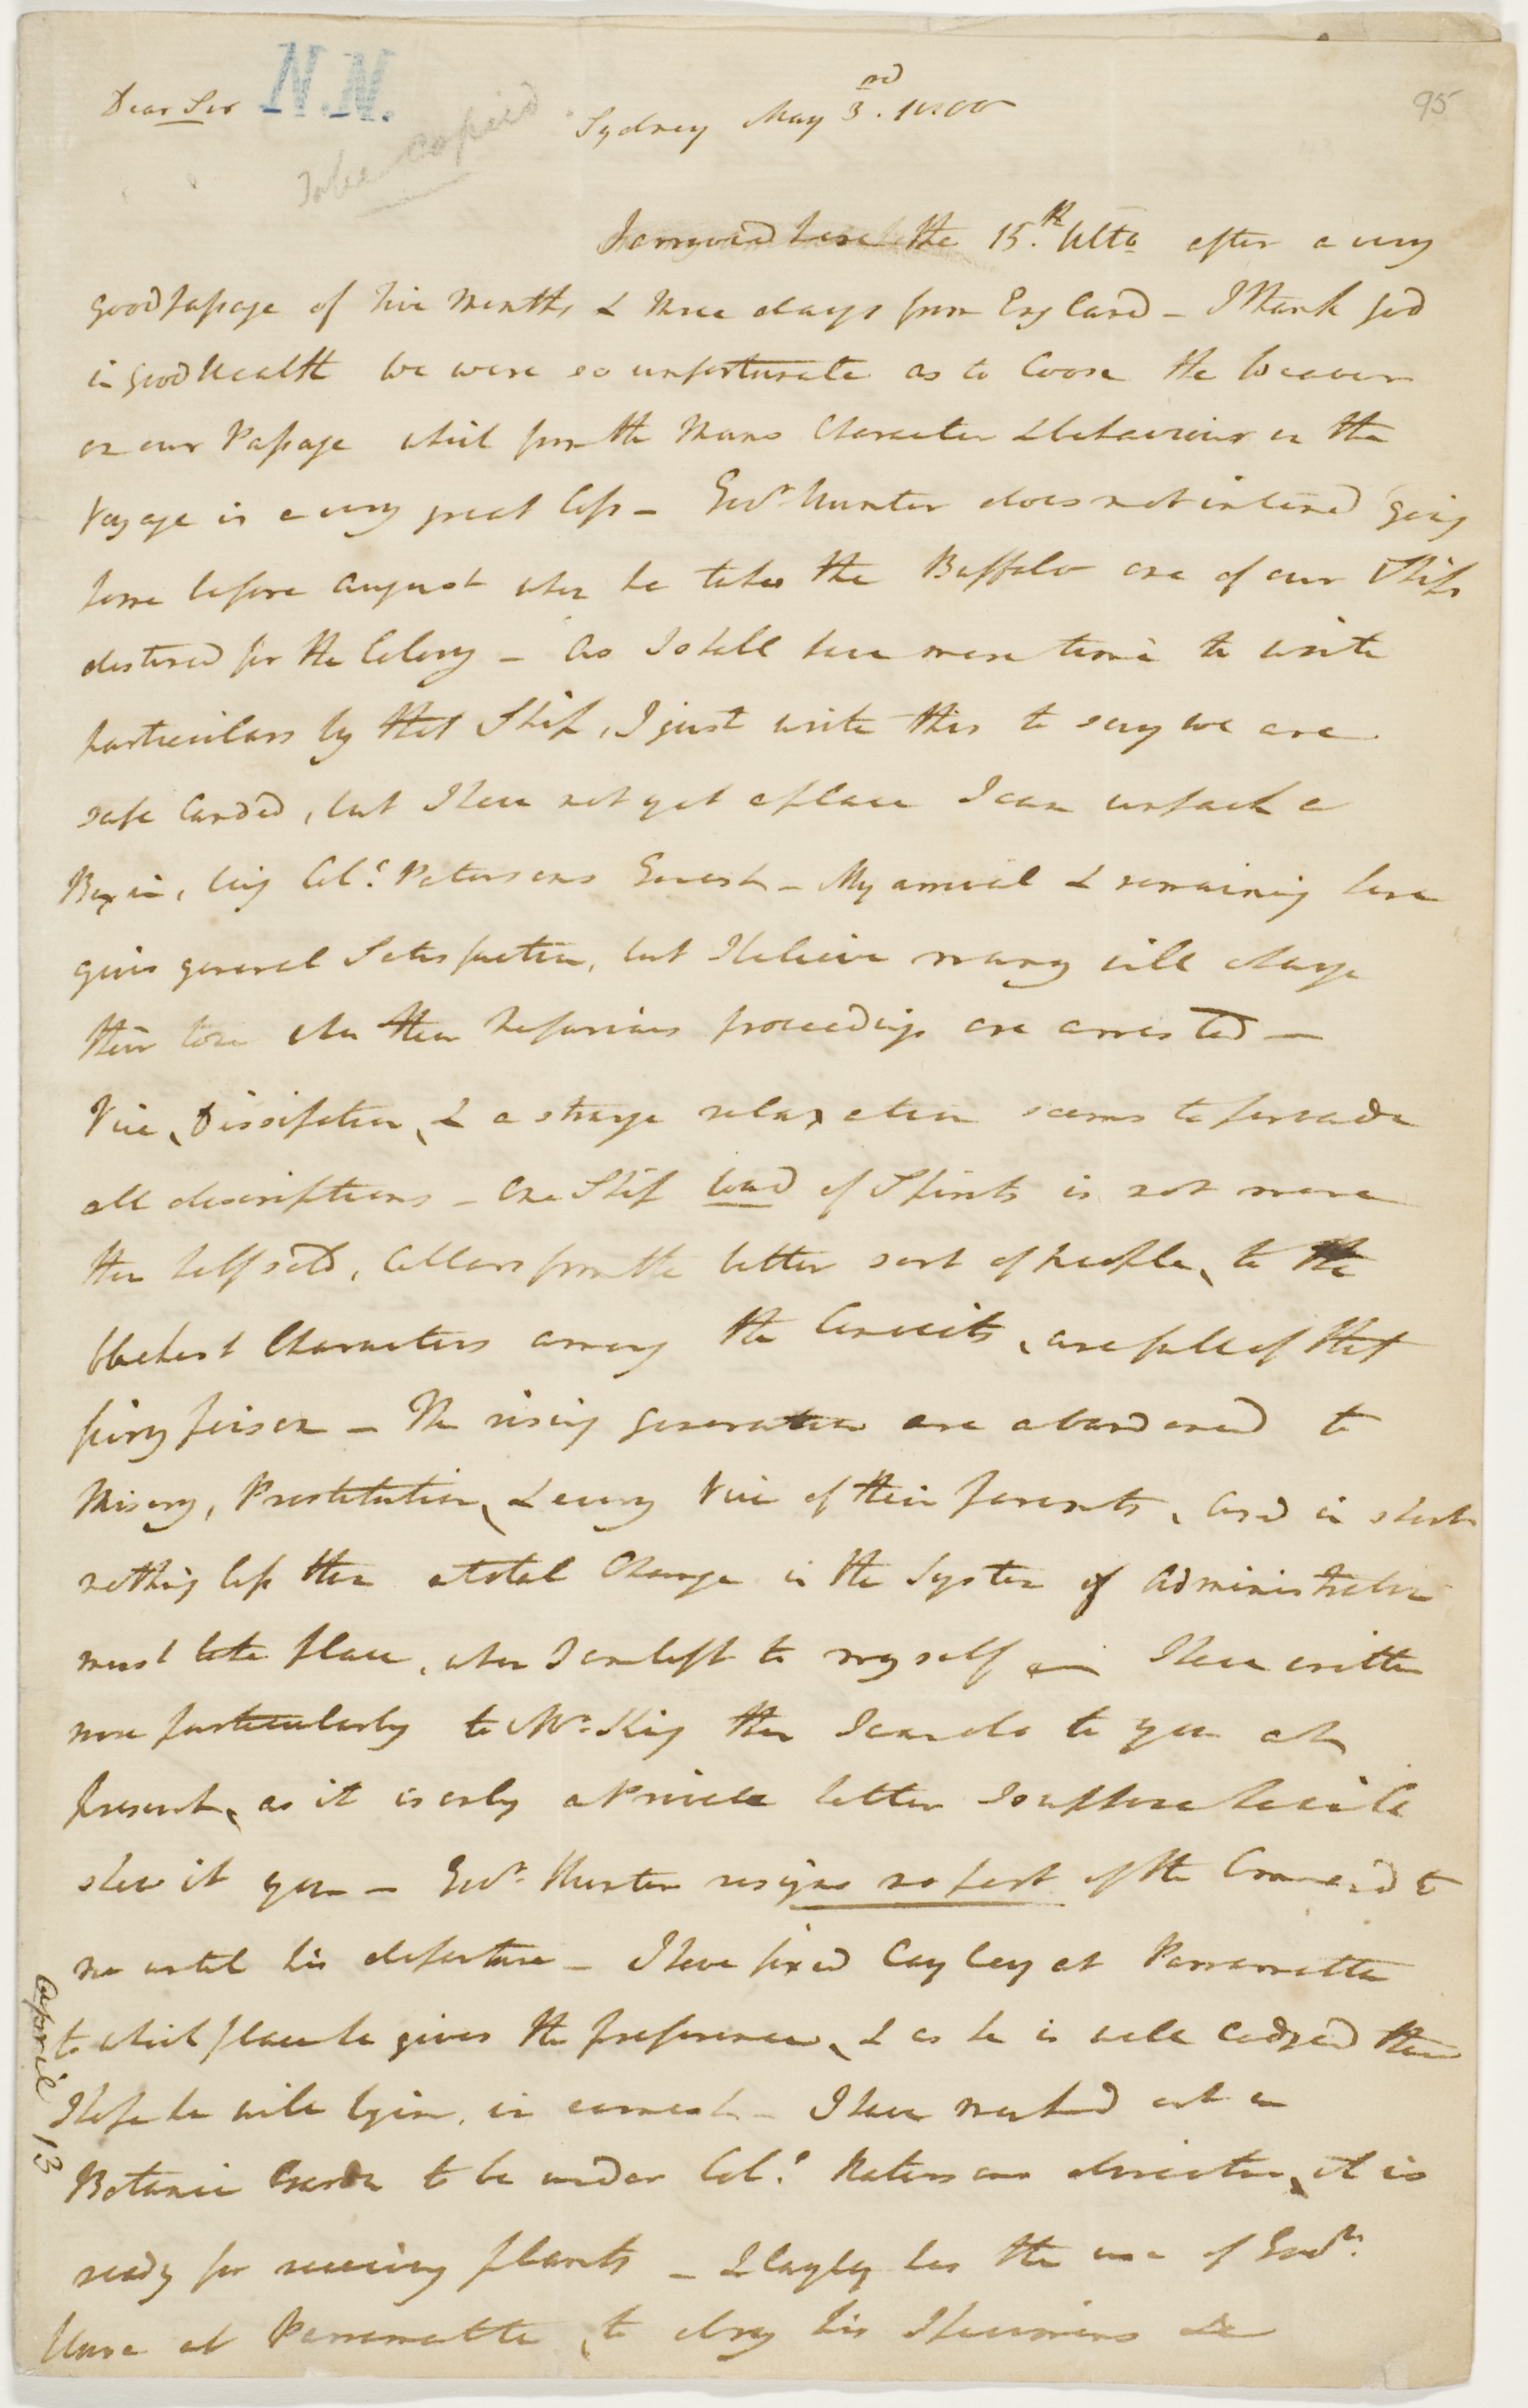 95
Dear Sir N.N.
To be copied
Sydney May 3rd. 1800
I arryved here the 15.th Ulto after a very
good passage of five Months & three days from England - I thank god
in good health We were so unfortunate as to loose the Weaver
on our Passage which from the Mans Character & behaviour on the
Voyage is a very great loss - Govr. Hunter does not intend going
home before August when he takes the Buffalo one of our Ships
destined for the Colony - As I shall have more time to write
particulars by that Ship, I just write this to say we are
safe landed, but I have not yet a place I can unpack a
Box in, being Coll. Patersons Guest - My arrival & remaining here
gives general Satisfaction, but I believe many will change
their tone when their Nefarious proceedings are arrested -
Vice, Dissipation, & a strange relaxation seems to pervade
all descriptions - One Ship load of Spirits is not more
than half sold, Cellars from the better sort of people, to the
blackest Characters among the Convicts, are full of that
fiery poison - The rising generation are abandoned to
Misery, Prostitution, & every Vice of their parents, and in short
nothing less than a total Change in the System of Administration
must take place, when I am left to myself - I have written
more particularly to Mr. King than I can do to you at
present, as it is only a Private letter I suppose he will
shew it you - Govr. Hunter resigns no part of the Command to
me until his departure - I have fixed Cayley at Parramatta
to which place he gives the preference, & as he is well lodged there
I hope he will begin, in earnest - I have marked out a
Botanic Garden to be under Coll. Patersons direction, it is
ready for receiving plants - & Cayley has the use of Govrs.
House at Parramatta, to dry his Specimens &c
April 13